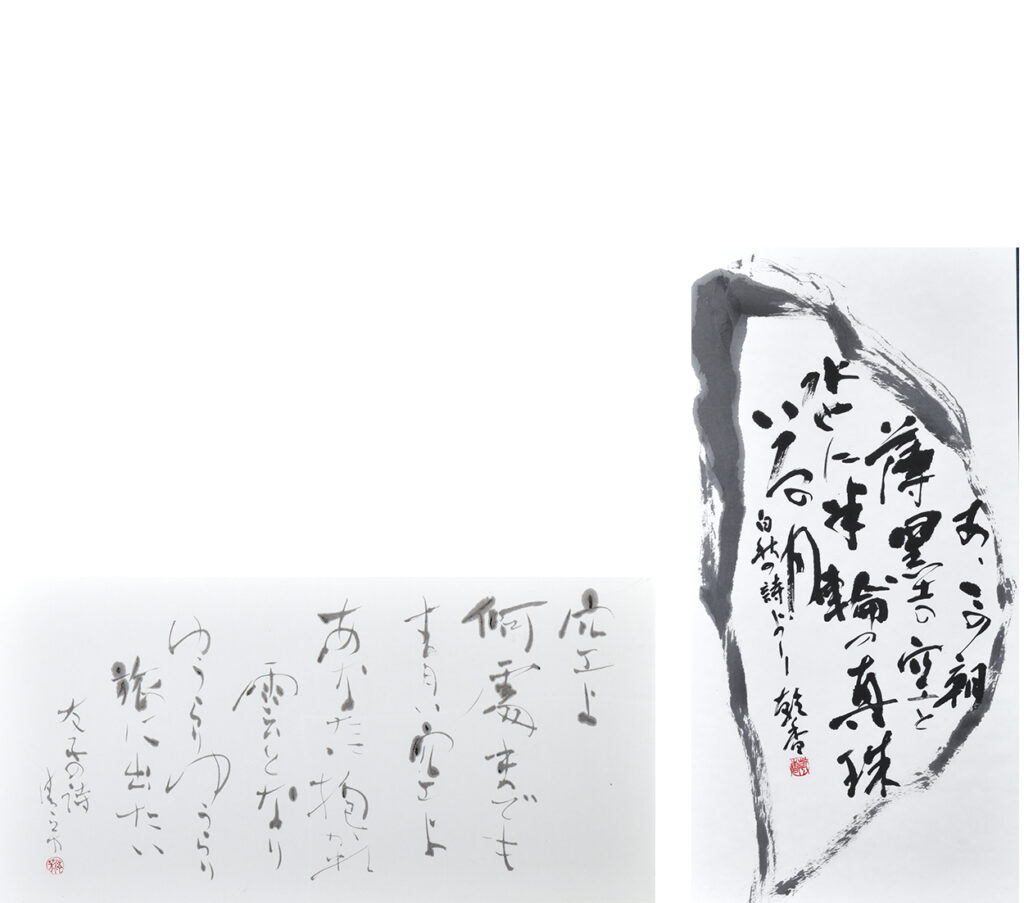 あゝこの朝
薄墨の空
に半輪の真珠
いての月
自然の詩より
空よ
何處までも
青い空よ
あなたに抱かれ
雲となり
ゆうらりゆうらり
旅に出たい
の詩